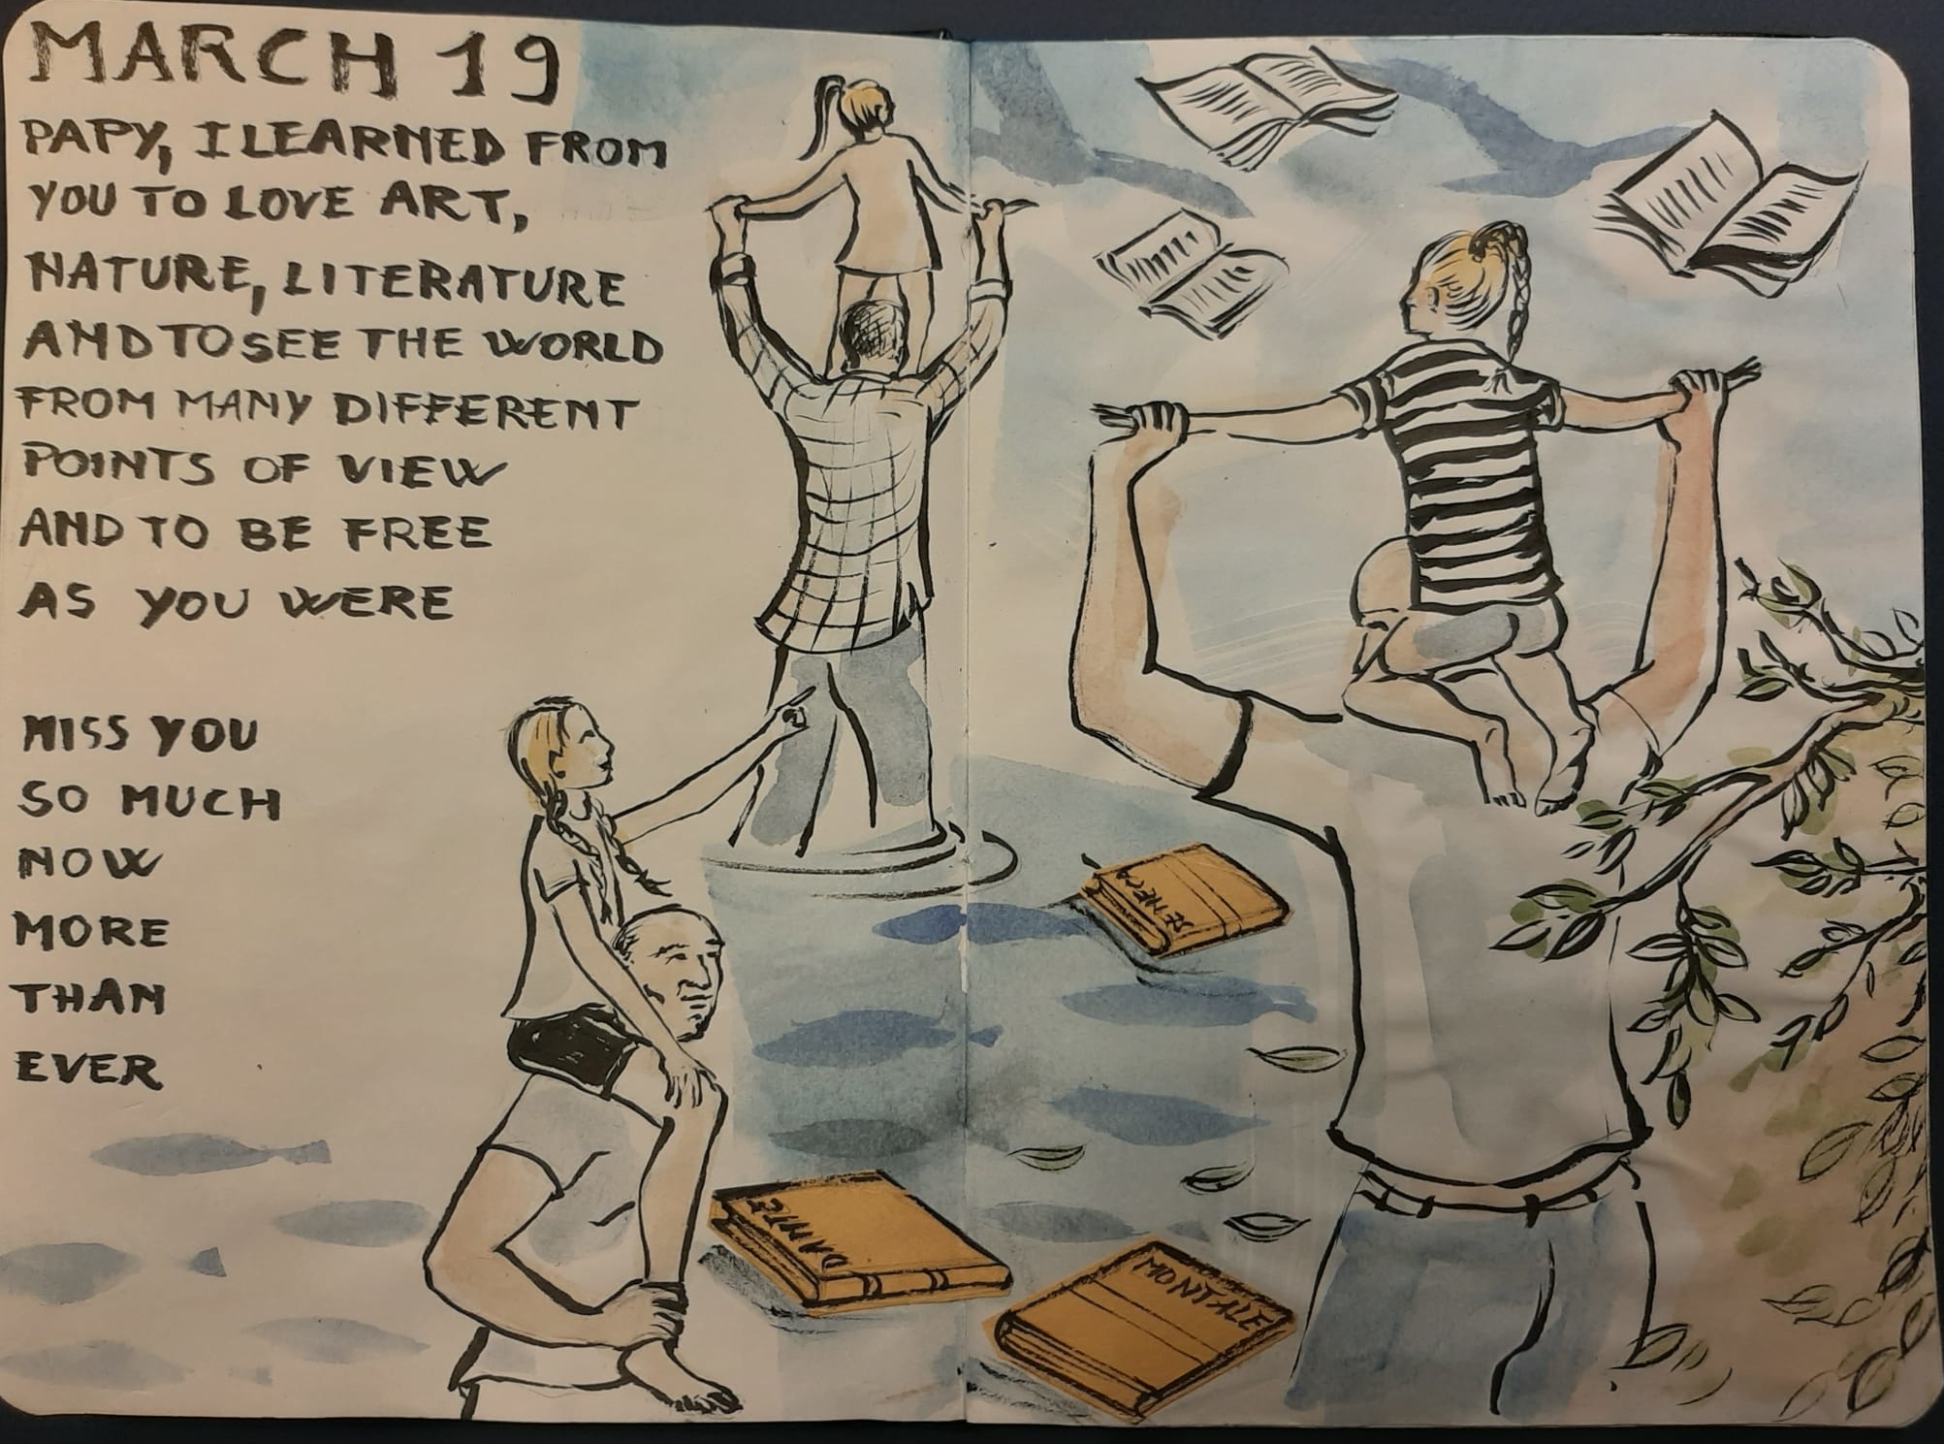 MARCH 19
PAPY, I LEARNED FROM
YOU TO LOVE ART,
NATURE, LITERATURE
AND TO SEE THE WORLD
FROM MANY DIFFERENT
POINTS OF VIEW
AND TO BE FREE
AS YOU WERE
MISS YOU
SO MUCH
NOW
MORE
THAN
EVER
SENECA
DANTE
MONTALE